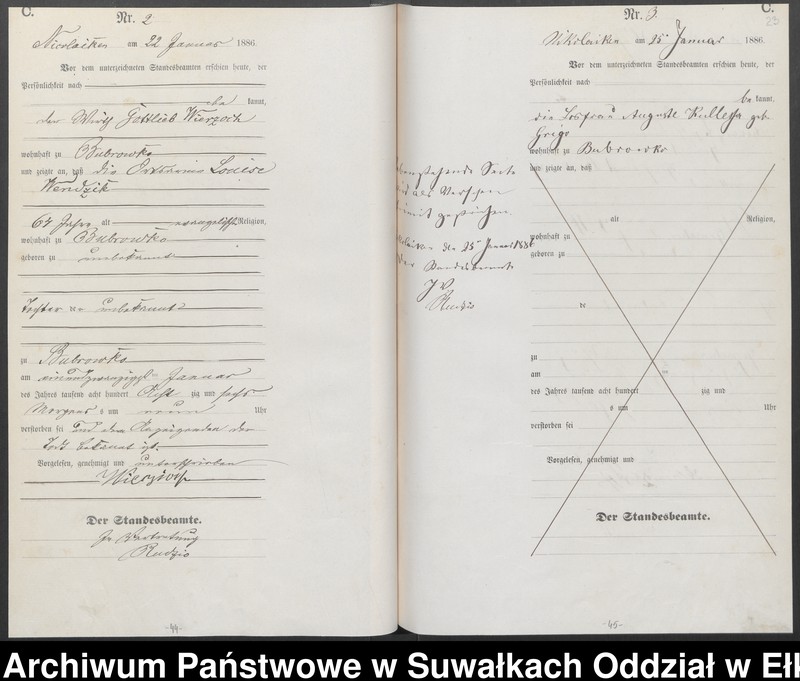 C.
Nr. 2
Nicolaiken am 22 Januar 1886
Vor dem unterzeichneten Standesbeamten erschien heute, der
Persönlichkeit nach
be kannt,
der Wirth Gottlieb Wierzoch
wohnhaft zu Bubrowko
und zeigte an, daß die Ortsarme Louise
Wendzik
64 Jahre alt evangelischer Religion,
wohnhaft zu Bubrowko
geboren zu unbekannt
Tochter der unbekannt
zu Bubrowko
am einundzwanzigsten Januar
des Jahres tausend acht hundert Acht zig und sechs
Morgens s um neun Uhr
verstorben sei und dem Anzeigenden der
Tod bekannt ist.
Vorgelesen, genehmigt und unterschrieben
Wierzoch
Der Standesbeamte.
In Vertretung
Rudzio
-44-
C.
23
Nr. 3.
Nikolaiken am 25 Januar 1886.
Vor dem unterzeichneten Standesbeamten erschien heute, der
Persönlichkeit nach
be kannt,
die Losfrau Auguste Kullessa geb.
Grigo
wohnhaft zu Bubrowko
und zeigte an, daß
alt Religion,
wohnhaft zu
geboren zu
de
zu
am ten
des Jahres tausend acht hundert zig und
s um Uhr
verstorben sei
Vorgelesen, genehmigt und
Der Standesbeamte.
-45-
Nebenstehende Seite
wird als Versehen
hiermit gestrichen.
Nikolaiken den 25 Januar 1886
Der Standesbeamte
J. V.
Rudzio
Archiwum Państwowe w Suwałkach Oddział w Ełk